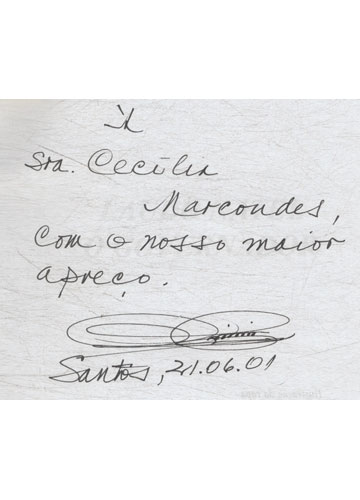 À
Sra. Cecília
Marcondes,
com o nosso maior
apreço.
Santos, 21.06.01